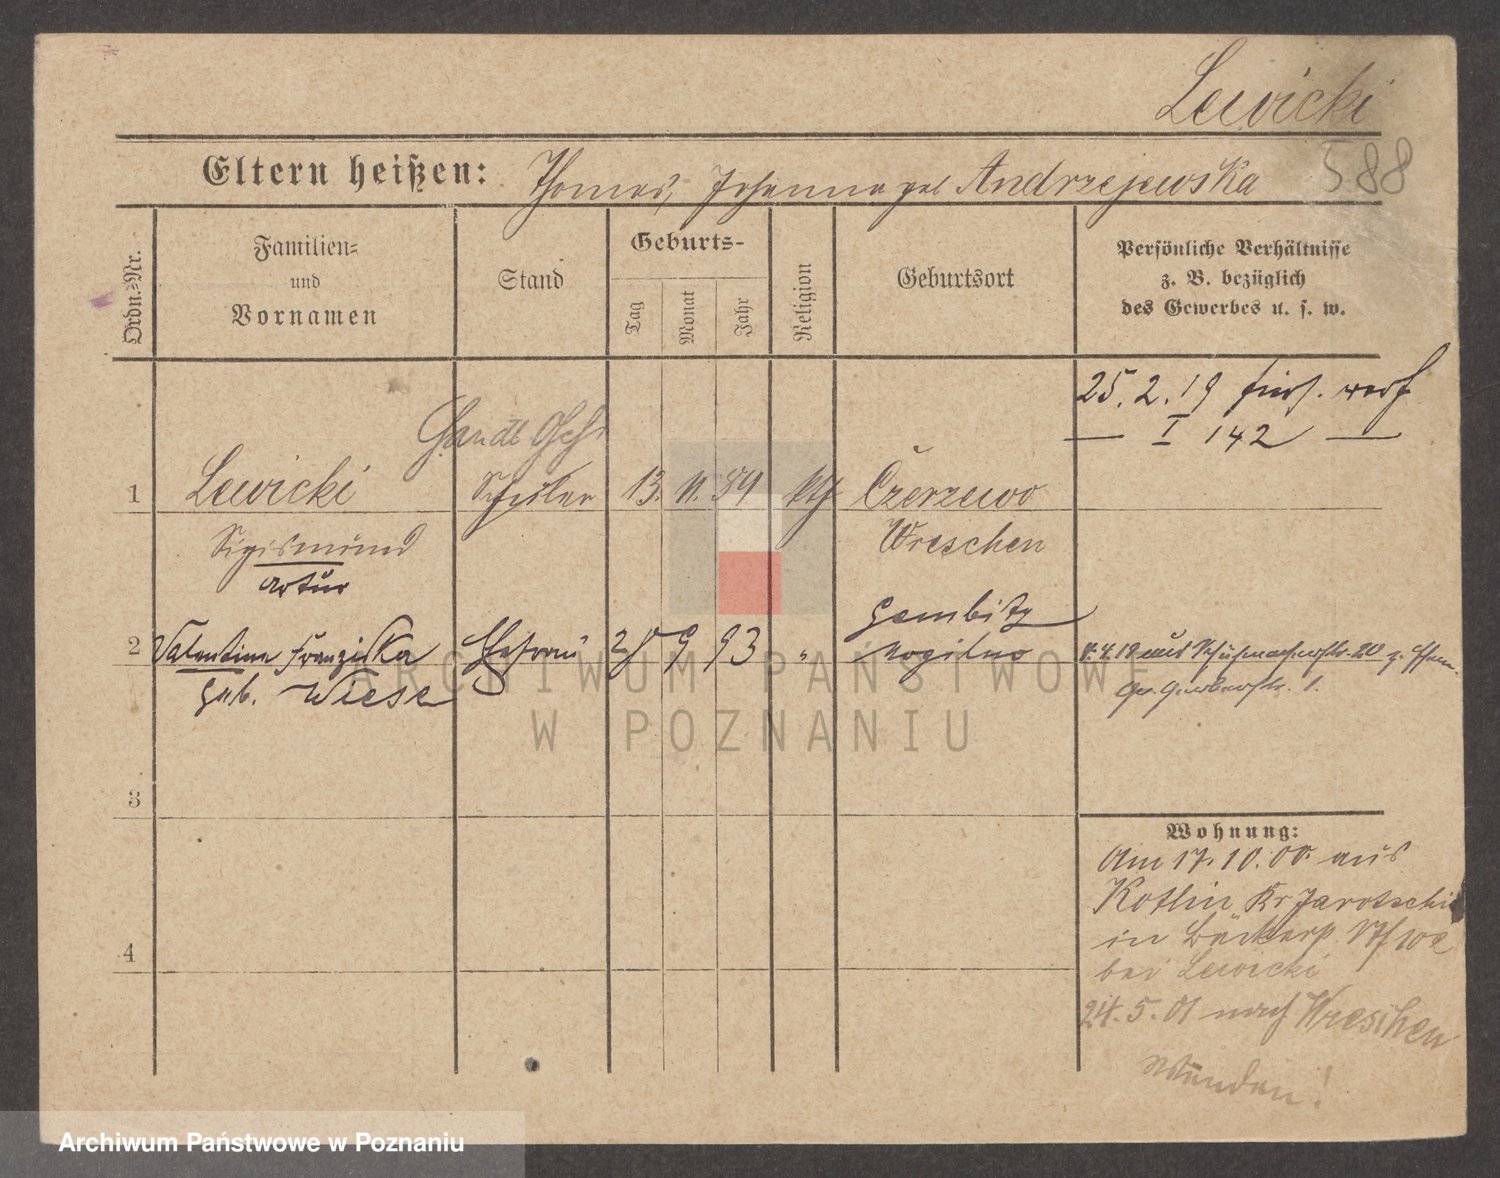 Lewicki
588
Eltern heißen: Thomas, Johanna geb Andrzejewska
Ordn.=Nr.
Familien=
und
Vornamen
Stand
Geburts-
Tag
Monat
Jahr
Religion
Geburtsort
Persönliche Verhältnisse
z. B. bezüglich
des Gewerbes u. s. w.
25. 2. 19
I 142
Handl
1 Lewicki Schüler 13. 11. 89 kth Czerzewo
Sigismund Wreschen
Artur
Gembitz
2 Valentina Franziska Ehefrau 9 93 " Mogilno
geb. Wiese
3
4
Wohnung:
Am 17. 10. 00. aus
Kotlin Kr Jarotschi
in
bei Lewicki
24. 5. 01 nach Wreschen
ARCHIWUM PAŃSTWOWE
W POZNANIU
Archiwum Państwowe w Poznaniu